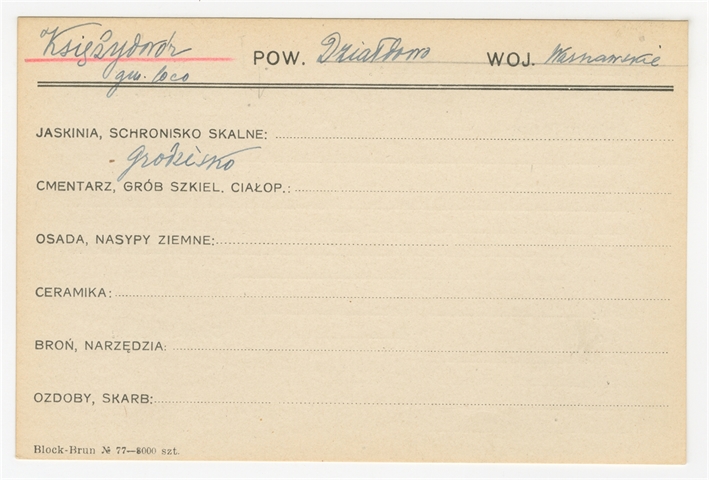 Księżydwór POW. Działdowo WOJ. Warszawskie
gm. loco
JASKINIA, SCHRONISKO SKALNE:
- grodzisko
CMENTARZ, GRÓB SZKIEL. CIAŁOP.:
OSADA, NASYPY ZIEMNE:
CERAMIKA:
BROŃ, NARZĘDZIA:
OZDOBY, SKARB:
Block-Brun № 77—8000 szt.